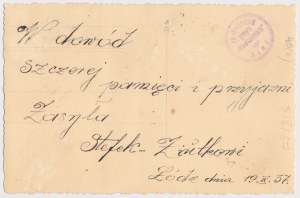 W dowód
szczerej
pamięci i przyjaźni
Zasyła
Stefek - Ziutkowi
Łódź dnia 19.X.37.